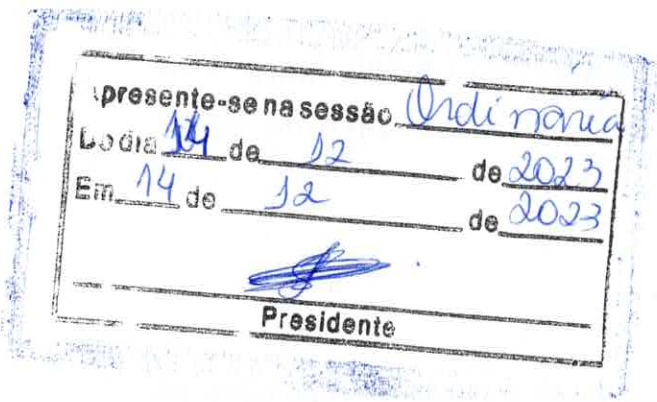 Apresente-se na sessão Ordinária
Do dia 14 de 12 de 2023
Em 14 de 12 de 2023
Presidente